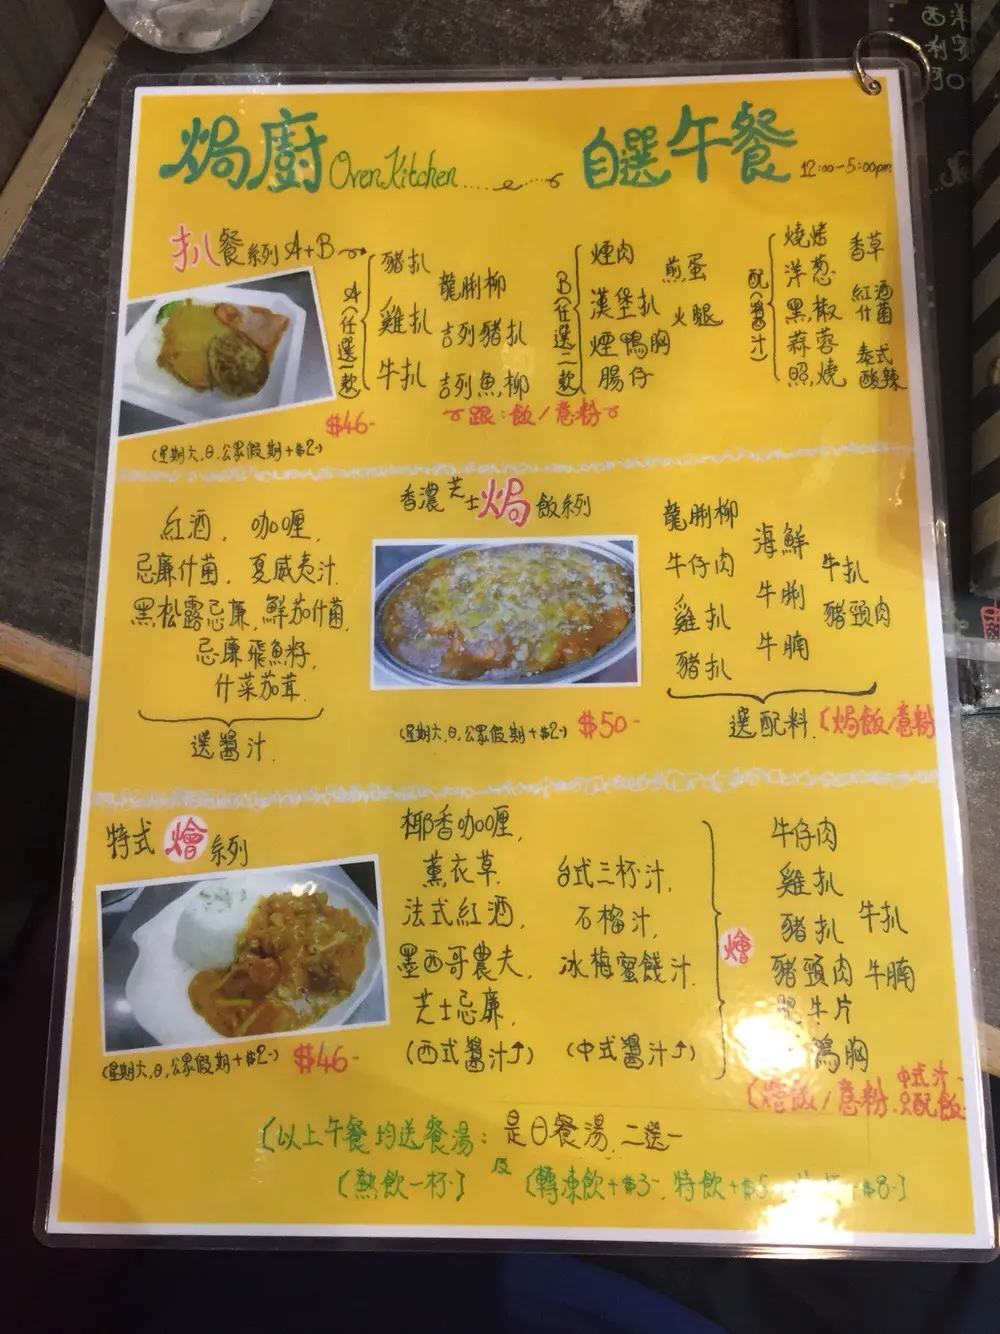 焗廚 Oven Kitchen 自選午餐 12:00-5:00pm
扒餐系列 A+B
A(任選一款)
豬扒
龍脷柳
雞扒
吉列豬扒
牛扒
吉列魚柳
B(任選二款)
煙肉
煎蛋
漢堡扒
火腿
煙鴨胸
腸仔
配(醬汁)
燒烤
香草
洋葱
紅酒什菌
黑椒
蒜蓉
泰式酸辣
照燒
跟:飯/意粉
$46-
(星期六,日,公眾假期+$2-)
香濃芝士焗飯系列
紅酒, 咖喱,
忌廉什菌, 夏威夷汁
黑松露忌廉, 鮮茄什菌,
忌廉飛魚籽,
什菜茄茸
選醬汁.
(星期六,日,公眾假期+$2-) $50-
龍脷柳
海鮮
牛仔肉
牛扒
牛脷
雞扒
豬頸肉
牛腩
豬扒
選配料.(焗飯/意粉
特式燴系列
(星期六,日,公眾假期+$2-) $46-
椰香咖喱,
薰衣草,
法式紅酒,
墨西哥農夫,
芝士忌廉,
(西式醬汁↑)
台式三杯汁,
石榴汁,
冰梅蜜餞汁
(中式醬汁↑)
燴
牛仔肉
雞扒
豬扒
牛扒
豬頸肉
牛腩
肥牛片
鴨胸
(燴飯/意粉 中式汁只配飯
(以上午餐均送餐湯: 是日餐湯 二選一
及
(熱飲一杯) (轉凍飲+$3-, 特飲+$5 +$8-)
西洋